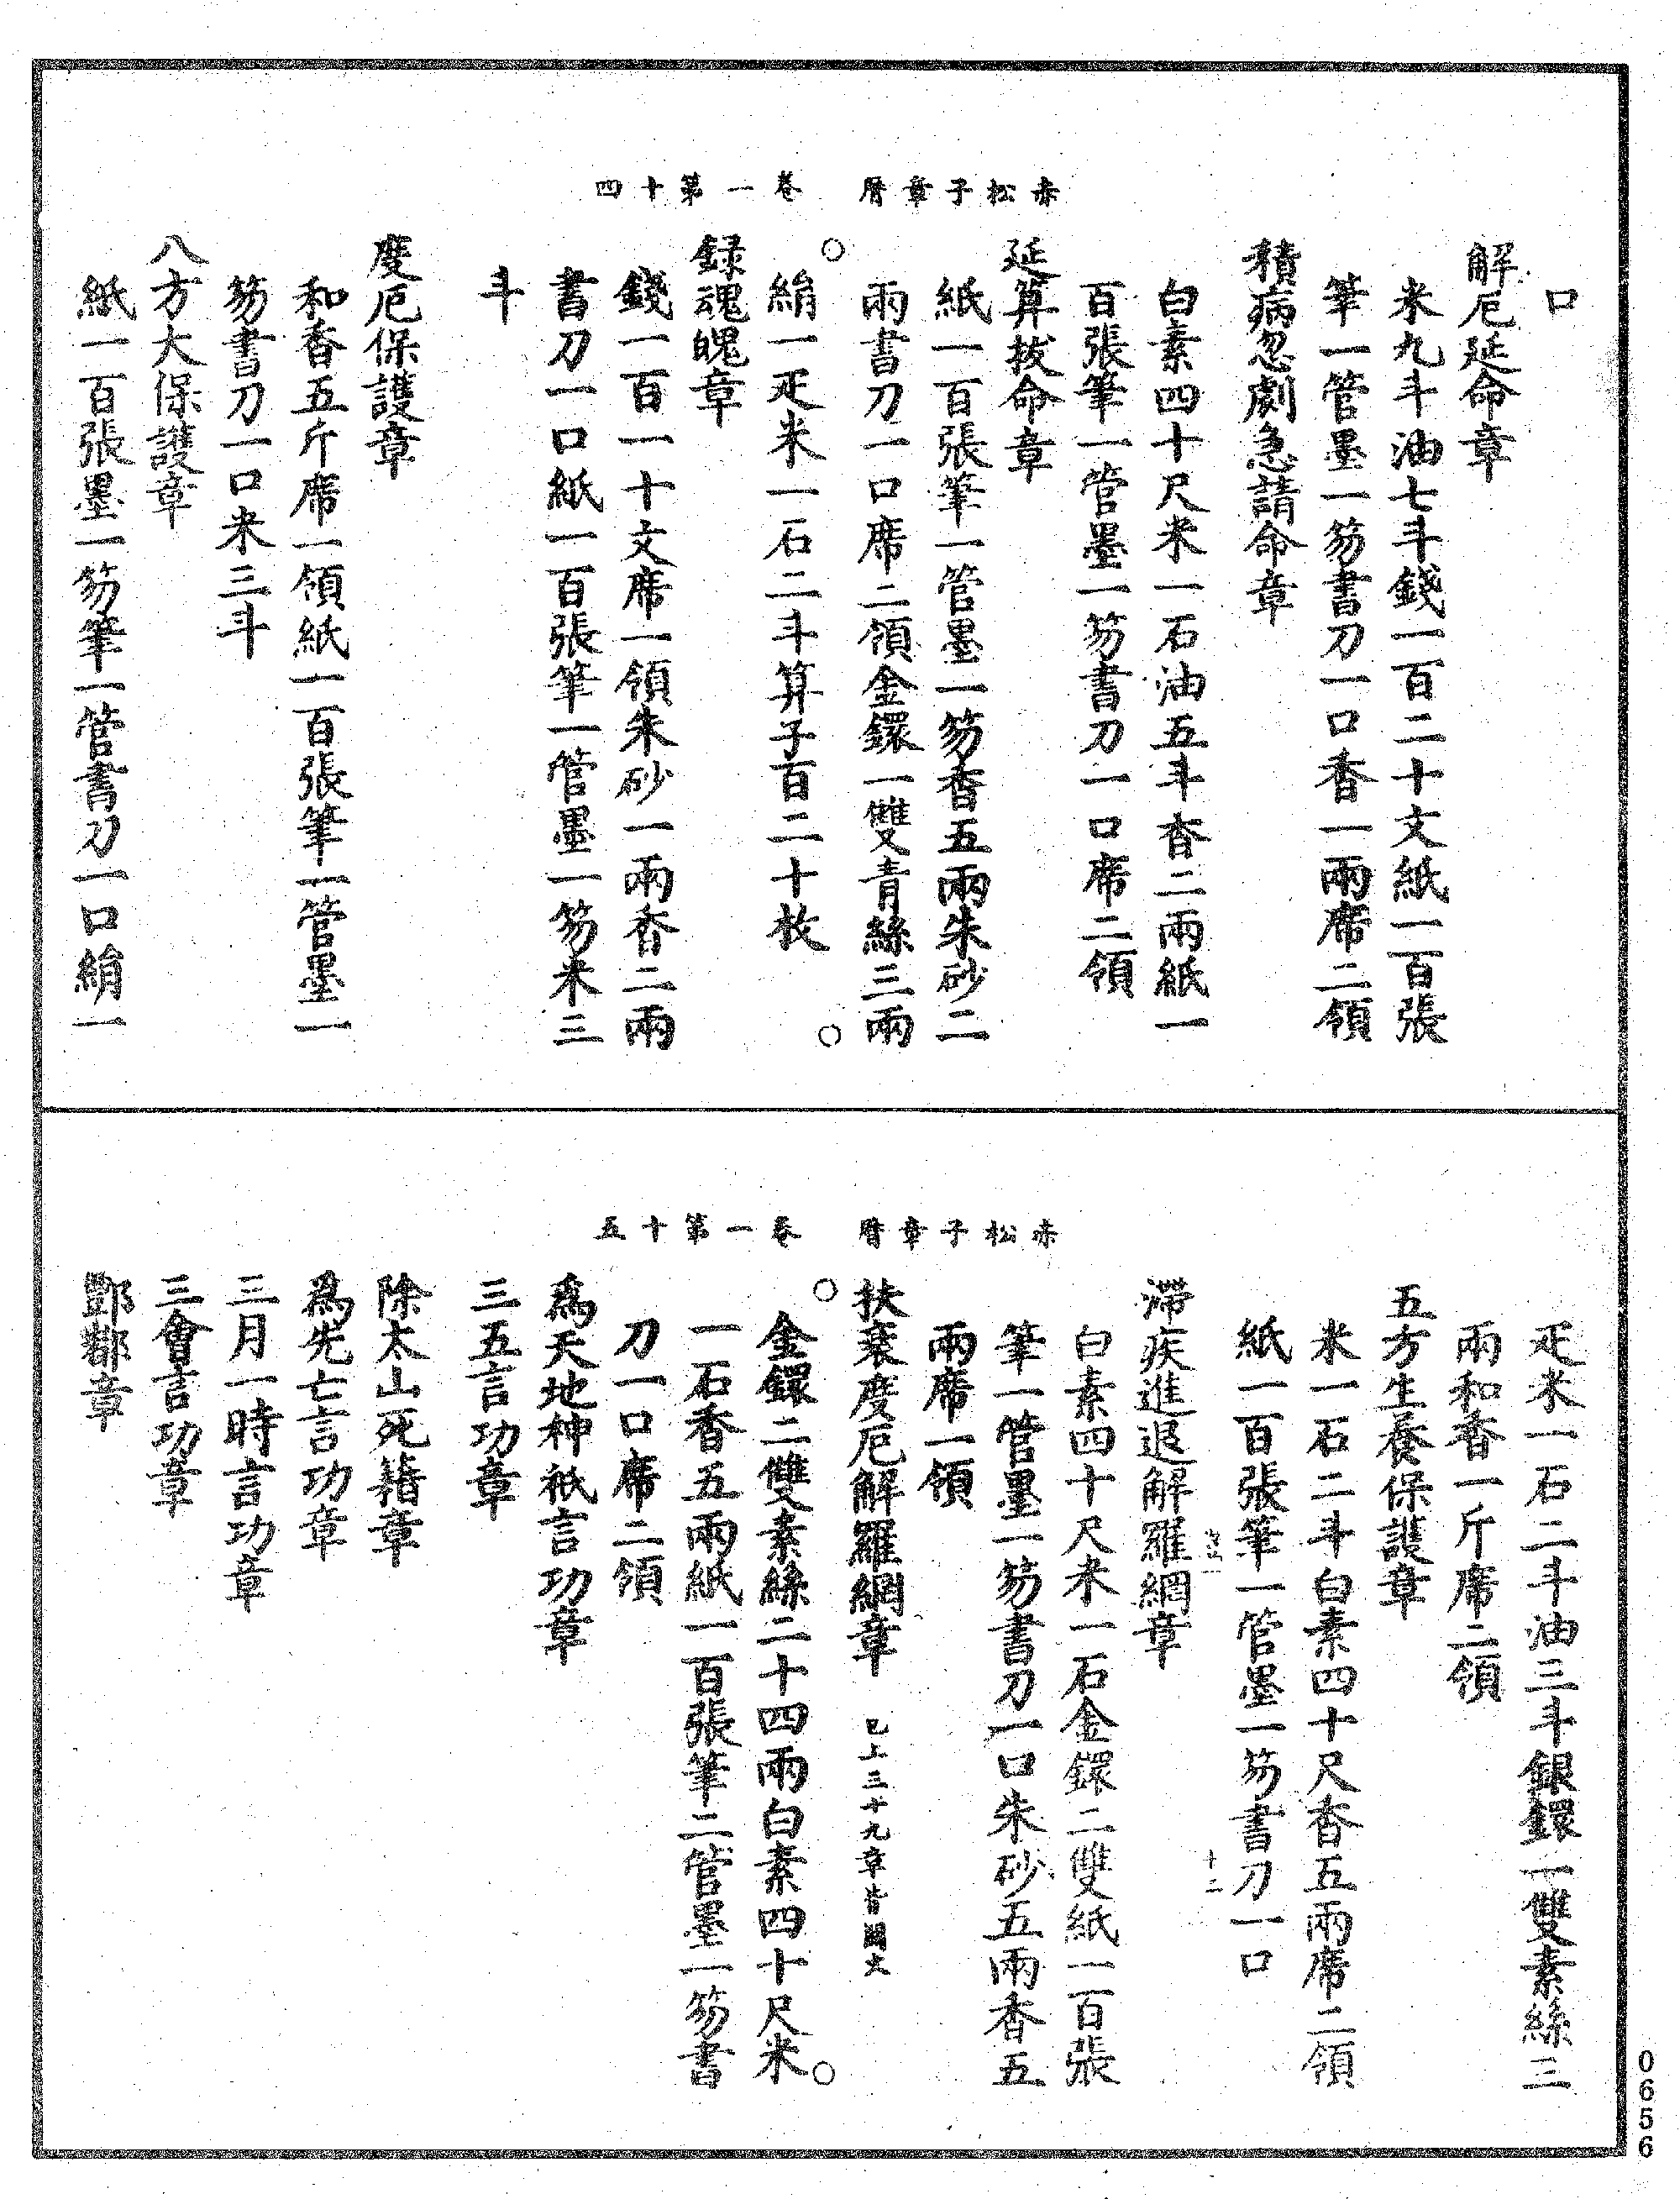 赤松子章曆　卷一第十四
口
解厄延命章
米九斗油七斗錢一百二十文紙一百張
筆一管墨一笏書刀一口香一兩席二領
積病忽劇急請命章
白素四十尺米一石油五斗香二兩紙一
百張筆一管墨一笏書刀一口席二領
延算拔命章
紙一百張筆一管墨一笏香五兩朱砂二
兩書刀一口席二領金鐶一雙青絲三兩
絹一疋米一石二斗算子百二十枚
錄魂魄章
錢一百一十文席一領朱砂一兩香二兩
書刀一口紙一百張筆一管墨一笏米三
斗
度厄保護章
和香五斤席一領紙一百張筆一管墨一
笏書刀一口米三斗
八方大保護章
紙一百張墨一笏筆一管書刀一口絹一
赤松子章曆　卷一第十五
疋米一石二斗油三斗銀鐶一雙素絲三
兩和香一斤席二領
五方生養保護章
米一石二斗白素四十尺香五兩席二領
紙一百張筆一管墨一笏書刀一口
十二
滯疾進退解羅網章
白素四十尺米一石金鐶二雙紙一百張
筆一管墨一笏書刀一口朱砂五兩香五
兩席一領
扶衰度厄解羅網章　已上三十九章皆國大
金鐶二雙素絲二十四兩白素四十尺米
一石香五兩紙一百張筆二管墨一笏書
刀一口席二領
爲天地神祇言功章
三五言功章
除太山死籍章
爲先亡言功章
三月一時言功章
三會言功章
酆都章
0656